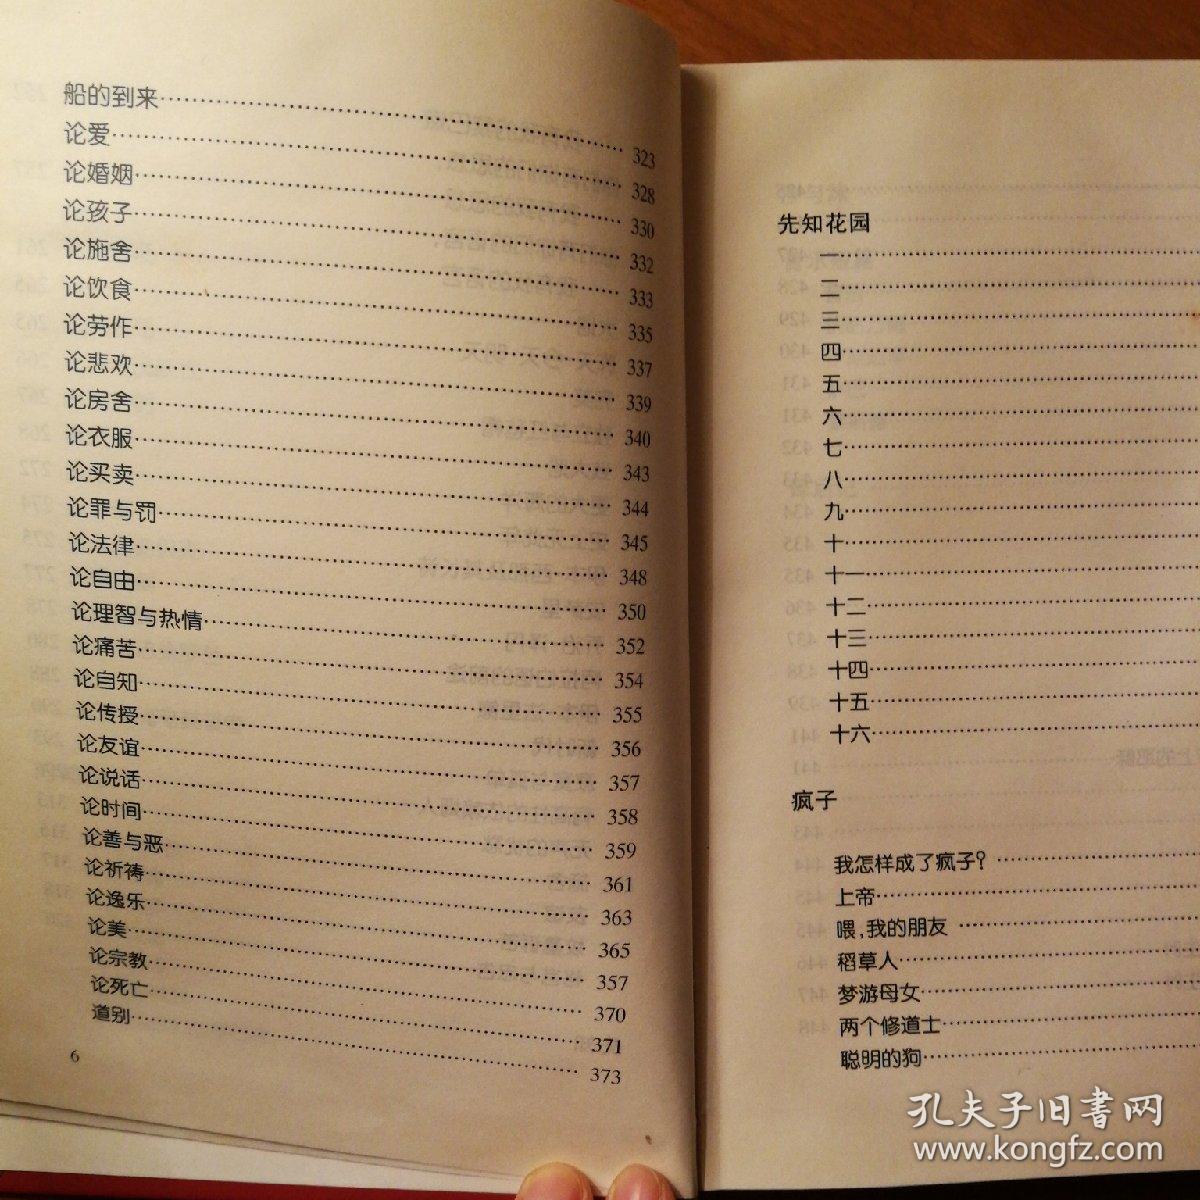 船的到来 …… 323
论爱 …… 328
论婚姻 …… 330
论孩子 …… 332
论施舍 …… 333
论饮食 …… 335
论劳作 …… 337
论悲欢 …… 339
论房舍 …… 340
论衣服 …… 343
论买卖 …… 344
论罪与罚 …… 345
论法律 …… 348
论自由 …… 350
论理智与热情 …… 352
论痛苦 …… 354
论自知 …… 355
论传授 …… 356
论友谊 …… 357
论说话 …… 358
论时间 …… 359
论善与恶 …… 361
论祈祷 …… 363
论逸乐 …… 365
论美 …… 357
论宗教 …… 370
论死亡 …… 371
道别 …… 373
6
先知花园
一 ……
二 ……
三 ……
四 ……
五 ……
六 ……
七 ……
八 ……
九 ……
十 ……
十一 ……
十二 ……
十三 ……
十四 ……
十五 ……
十六 ……
疯子
我怎样成了疯子? ……
上帝 ……
喂,我的朋友 ……
稻草人 ……
梦游母女 ……
两个修道士 ……
聪明的狗 ……
孔夫子旧書网
www.kongfz.com